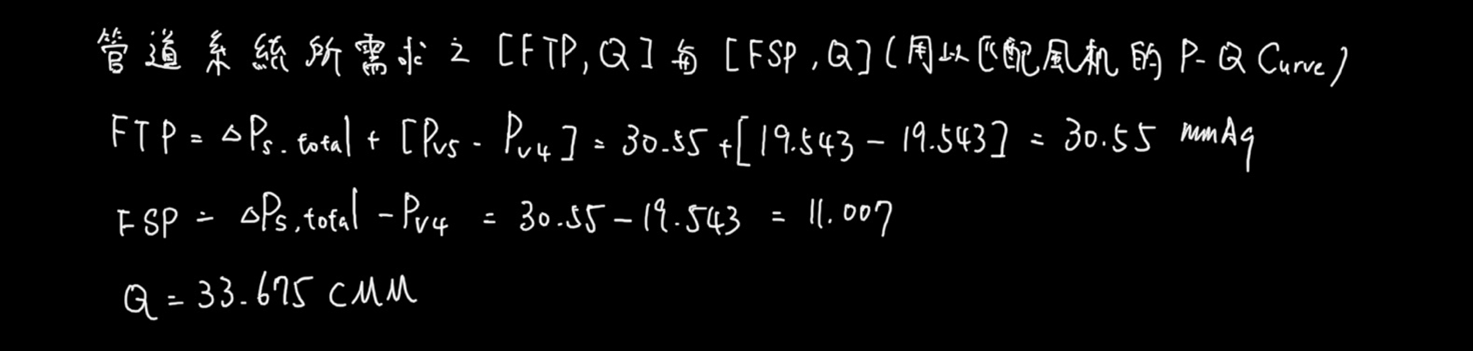 管道系統所需求之[FTP,Q]与[FSP,Q](用以匹配風机的P-Q Curve)
FTP = △Ps.total + [Pv5 - Pv4] = 30.55 + [19.543 - 19.543] = 30.55 mmAq
FSP = △Ps,total - Pv4 = 30.55 - 19.543 = 11.007
Q = 33.675 CMM